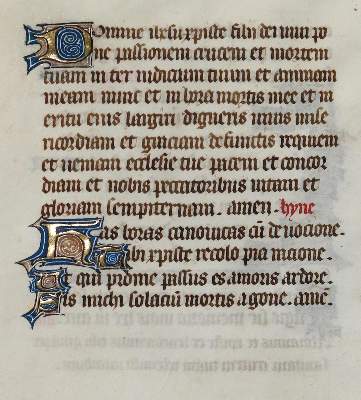 Domine ihesu xpiste filii dei uiui po
ne passionem crucem et mortem
tuam inter iudicium tuum et animam
meam nunc et in hora mortis mee et in
eritu eius largiri digneris uiuis mise
ricordiam et graciam defunctis requiem
et ueniam ecclesie tue pacem et concor
diam et nobis peccatoribus uitam et
gloriam sempiternam. amen. hyne
Has horas canonicas cū deuocione.
tibi xpiste recolo pia racione.
Et qui pro me passus es amoris ardore.
Sis michi solaciū mortis agone. amē.